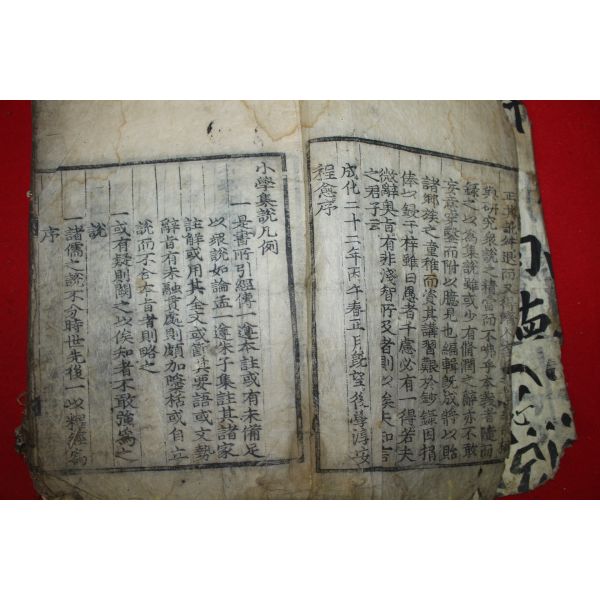 對研究衆說之精當而不悖乎本義者隨而
錄之以爲集說雖或少有脩潤之辭亦不敢
妄意穿鑿而附以臆見也編輯旣成將以貽
諸鄉族之童稚而資其講習艱於鈔錄因捐
俸以鋟于梓雖曰愚者千慮必有一得若夫
微辭奧旨有非淺智所及者則以俟夫知言
之君子云
成化二十二年丙午春正月旣望後學淳安
程愈序
小學集說凡例
一是書所引經傳一遵本註或有未備足
以衆說如論孟一遵朱子集註其諸家
註解或用其全文或節其要語或文勢
辭旨有未融貫處則頗加檃栝或自立
說而不合本旨者則略之
一或有疑則闕之以俟知者不敢強爲之
說
一諸儒之說不分時世先後一以釋經爲
序